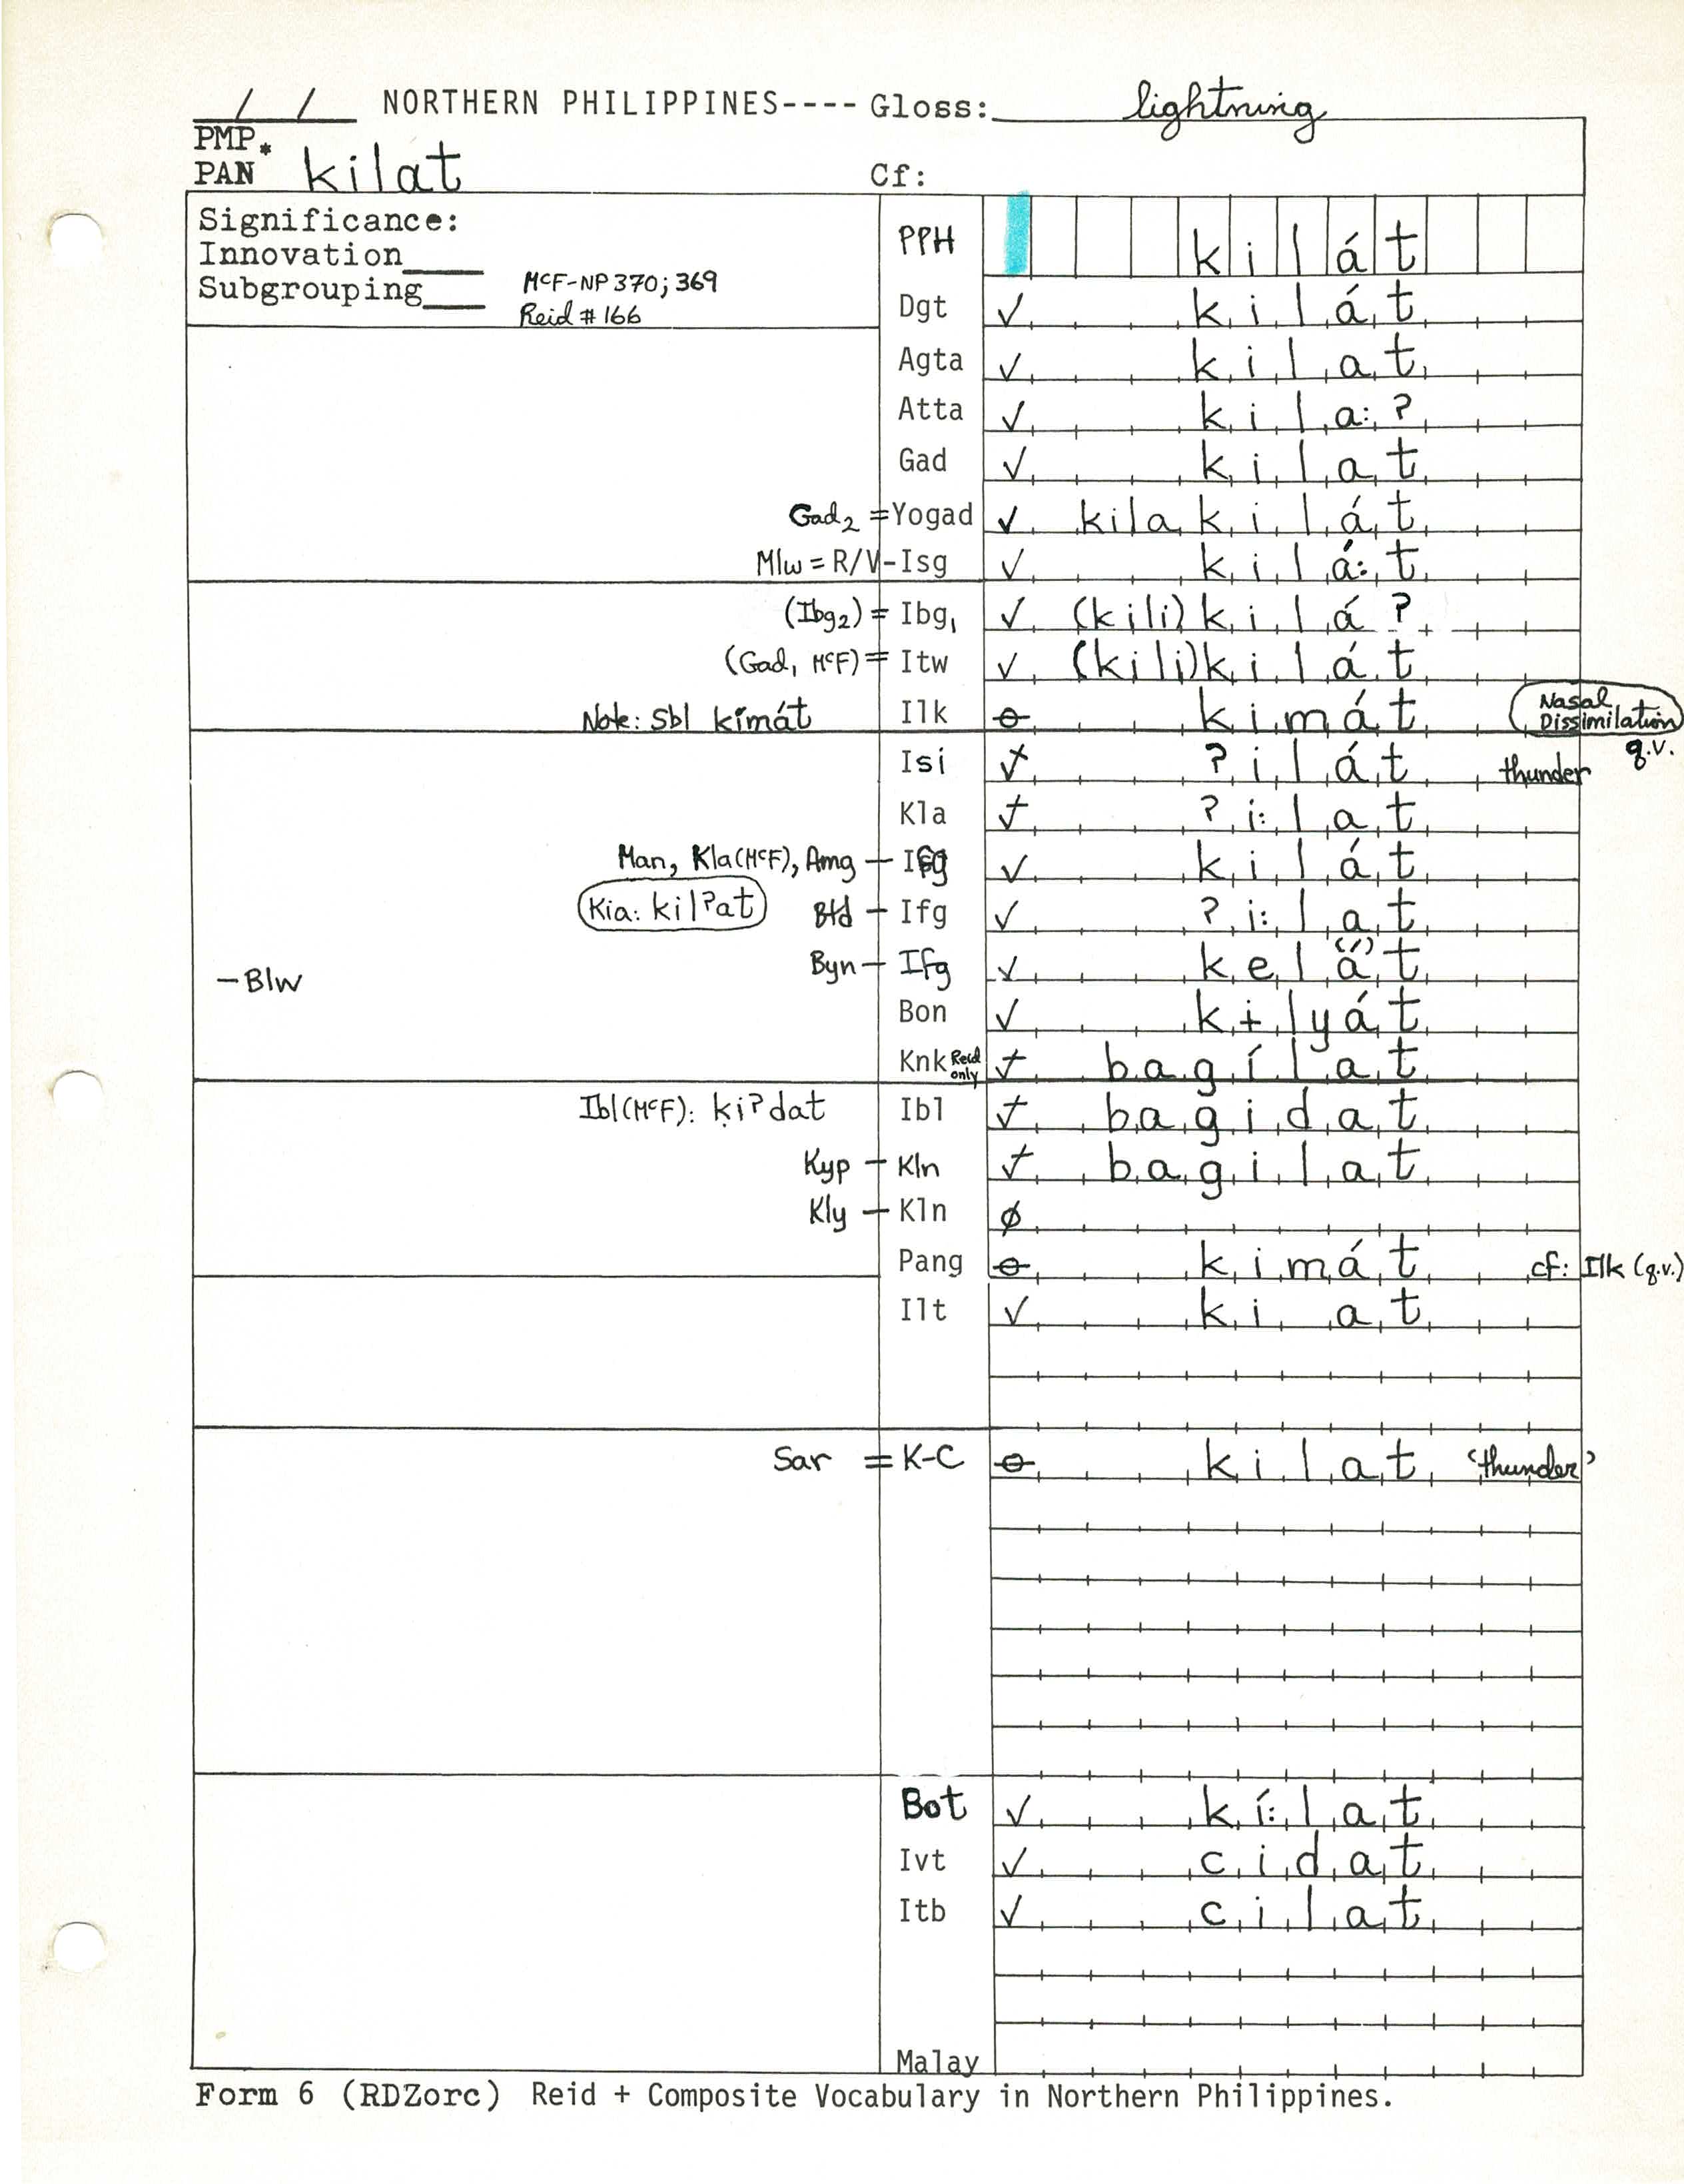 / / NORTHERN PHILIPPINES---- Gloss: lightning
PMP *
PAN kilat Cf:
Significance:
Innovation
Subgrouping
McF-NP 370; 369
Reid # 166
PPH kilát
Dgt ✓ kilát
Agta ✓ kilat
Atta ✓ kila:ʔ
Gad ✓ kilat
Gad2 = Yogad ✓ kilakilát
Mlw = R/V-Isg ✓ kilá:t
(Ibg2) = Ibg1 ✓ (kili)kiláʔ
(Gad, McF) = Itw ✓ (kili)kilát
Note: Sbl kimát Ilk ⊖ kimát Nasal Dissimilation q.v.
Isi ✓ ʔilát thunder
Kla ✓ ʔi:lat
Man, Kla(McF), Amg - Ifg ✓ kilát
Kia: kilʔat Btd - Ifg ✓ ʔi:lat
Byn - Ifg ✓ kela(́)t
-Blw
Bon ✓ kɨlyát
Knk Reid only ✓ bagílat
Ibl(McF): kiʔdat Ibl ✓ bagidat
Kyp - Kln ✓ bagilat
Kly - Kln ø
Pang ⊖ kimát cf: Ilk (q.v.)
Ilt ✓ ki at
Sar = K-C ⊖ kilat ‘thunder’
Bot ✓ kí:lat
Ivt ✓ cidat
Itb ✓ cilat
Malay
Form 6 (RDZorc) Reid + Composite Vocabulary in Northern Philippines.